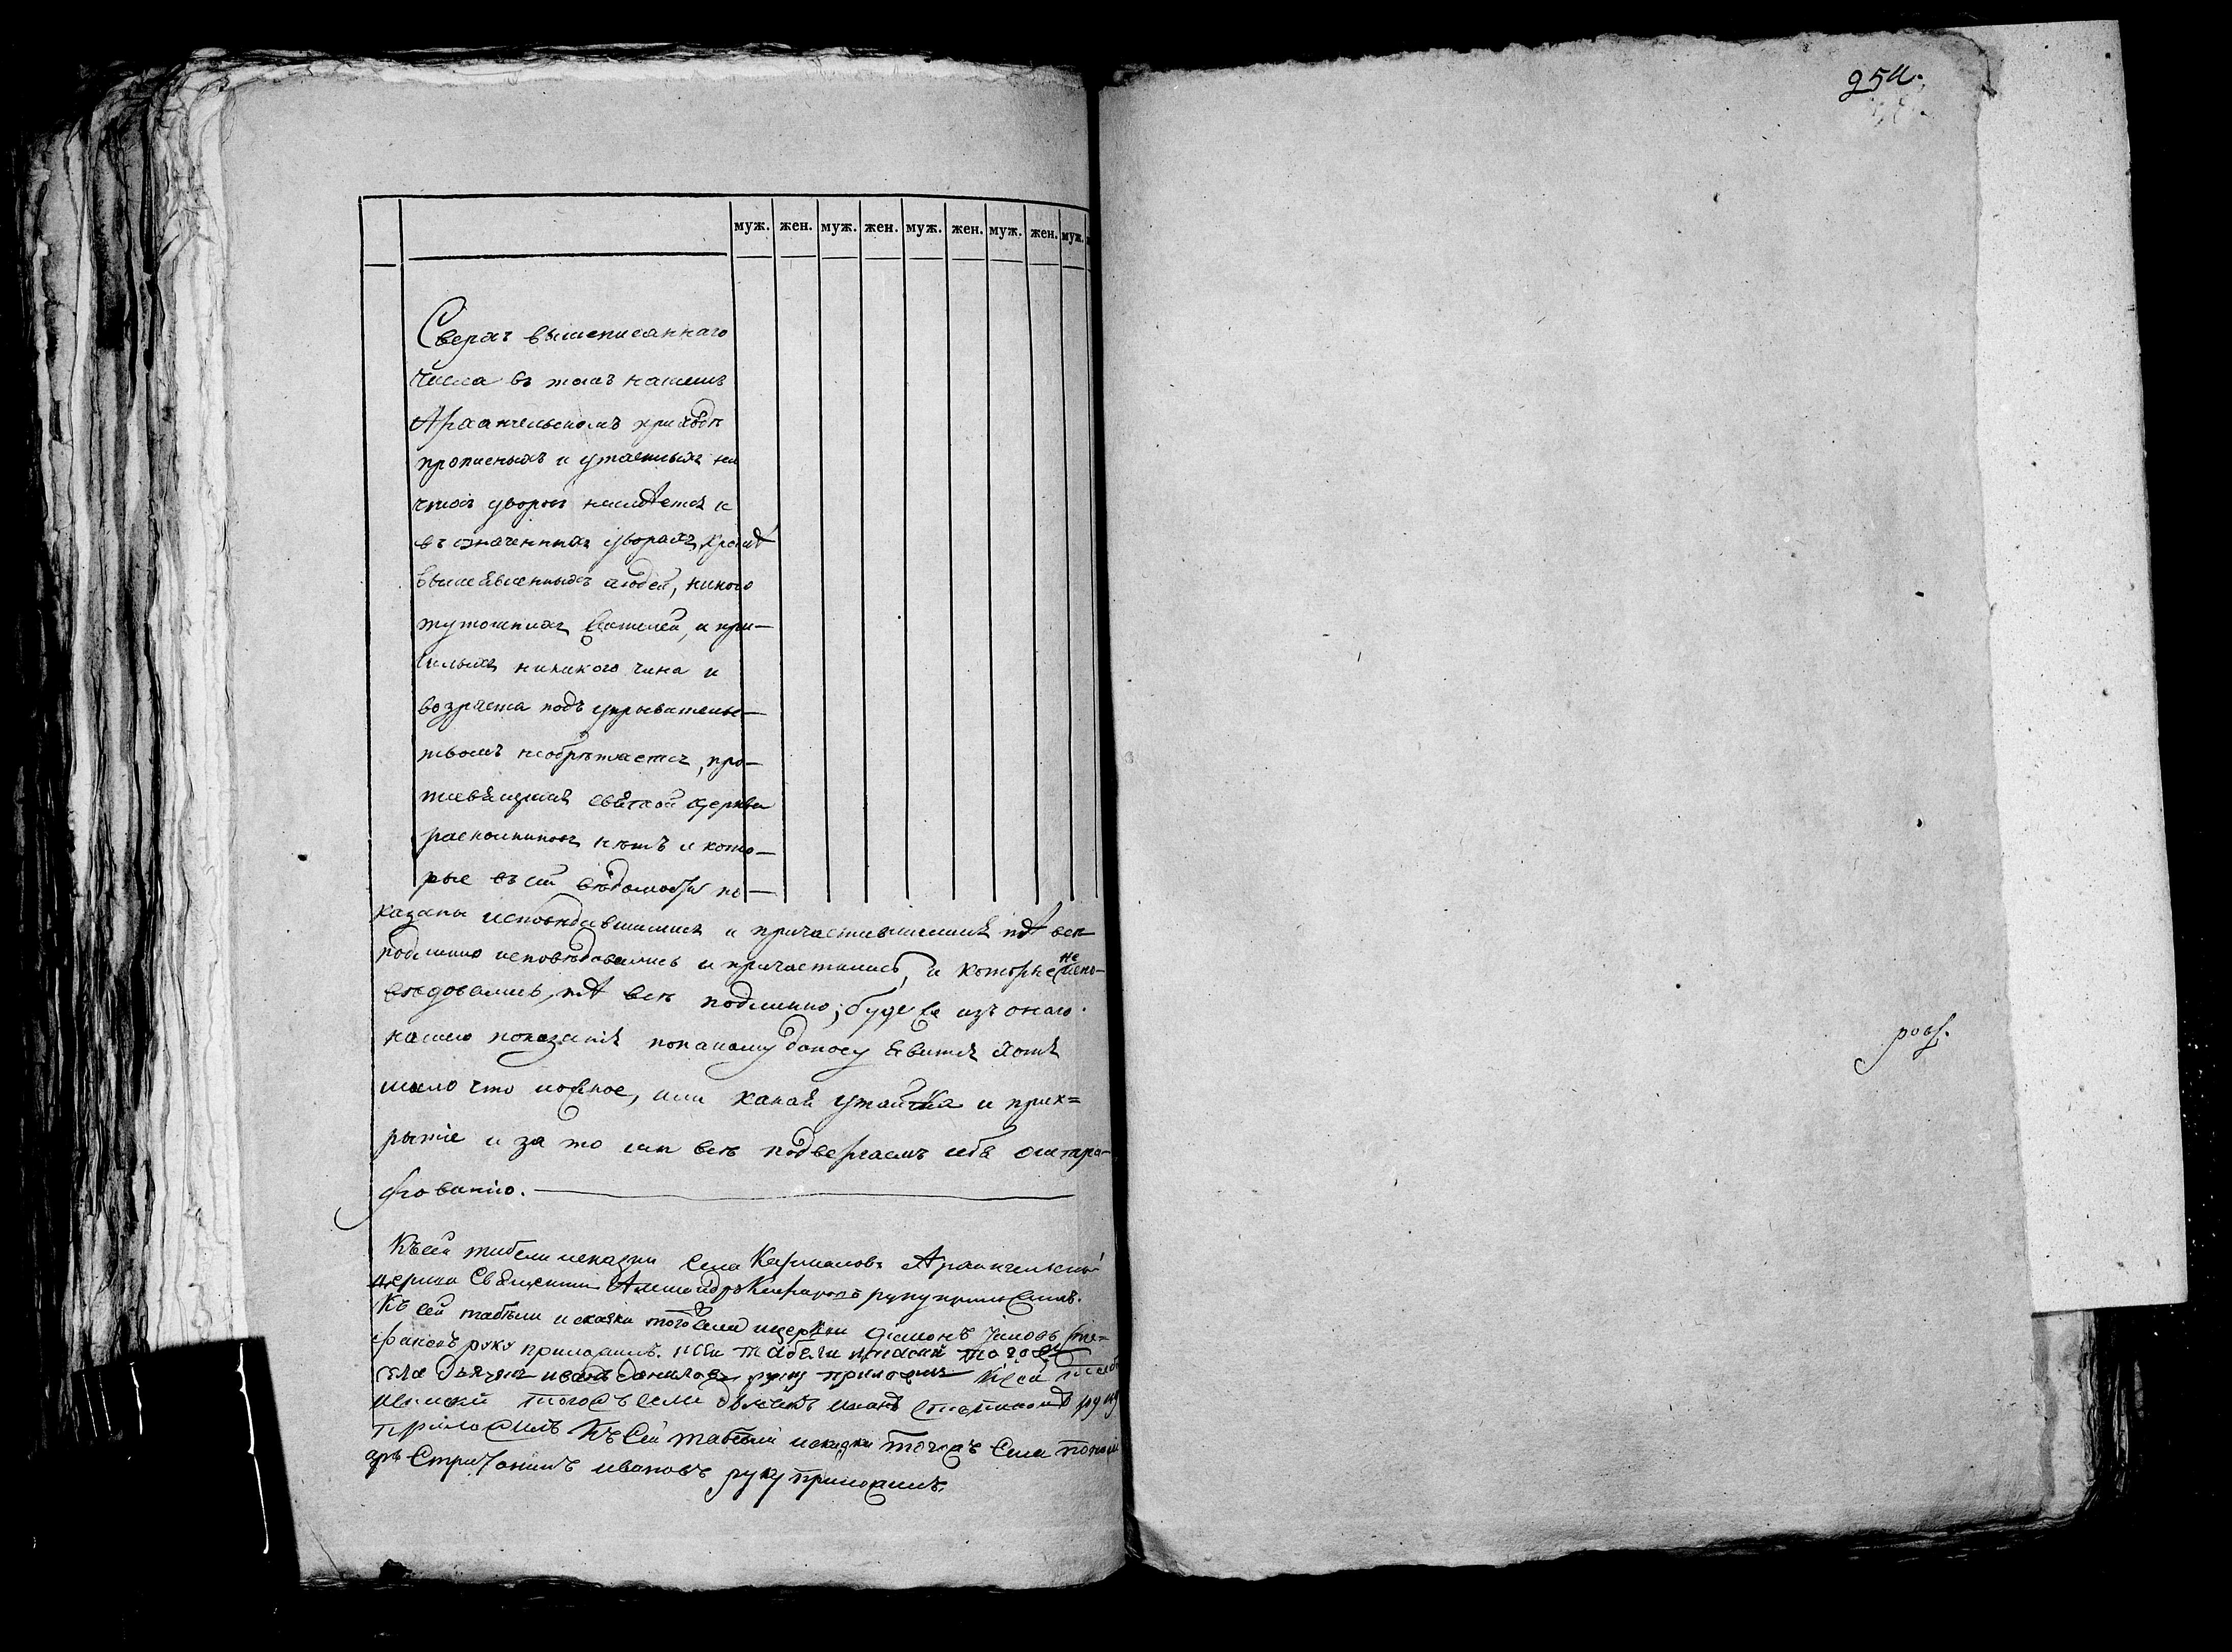 254.
муж. жен. муж. жен. муж. жен. муж. жен. муж.
Сверхъ вышеписаннаго
числа въ томъ нашемъ
Архангельскомъ приходѣ
прописныхъ и утаенныхъ ни
чьихъ дворовъ неимѣется и
въ означенныхъ дворахъ, кромѣ
вышеявленныхъ людей, никого
тутошнихъ жителей, и при-
шлыхъ никакого чина и
возраста подъ укрывательс-
твомъ необрѣтается, про-
тивящихся святой церкви
раскольниковъ нѣтъ и кото-
рые въ сей вѣдомости по-
казаны исповѣдавшимися и причастившимися тѣ всѣ
подлинно исповѣдовались и причастились, и которые не испо-
вѣдовались, тѣ всѣ подлинно; буде же изъ онаго
нашего показанія по какому доносу явится хотя
мало что ложное, или какая утайка и прик=
рытіе и за то мы всѣ подвергаемъ себя оштра-
фованію.
Къ сей табели и сказки села Архангельской
церкви Священникъ руку приложилъ.
Къ сей табели и сказки тогожъ села церкви Діаконъ Сте=
фановъ руку приложилъ. К сей табели и сказки того ж
села дьячекъ иванъ даниловъ руку приложилъ К сей
и сказки тогожъ села дьячекъ иванъ руку
приложилъ Къ сей табели и сказки тогожъ села поном
арь иванов руку приложилъ.